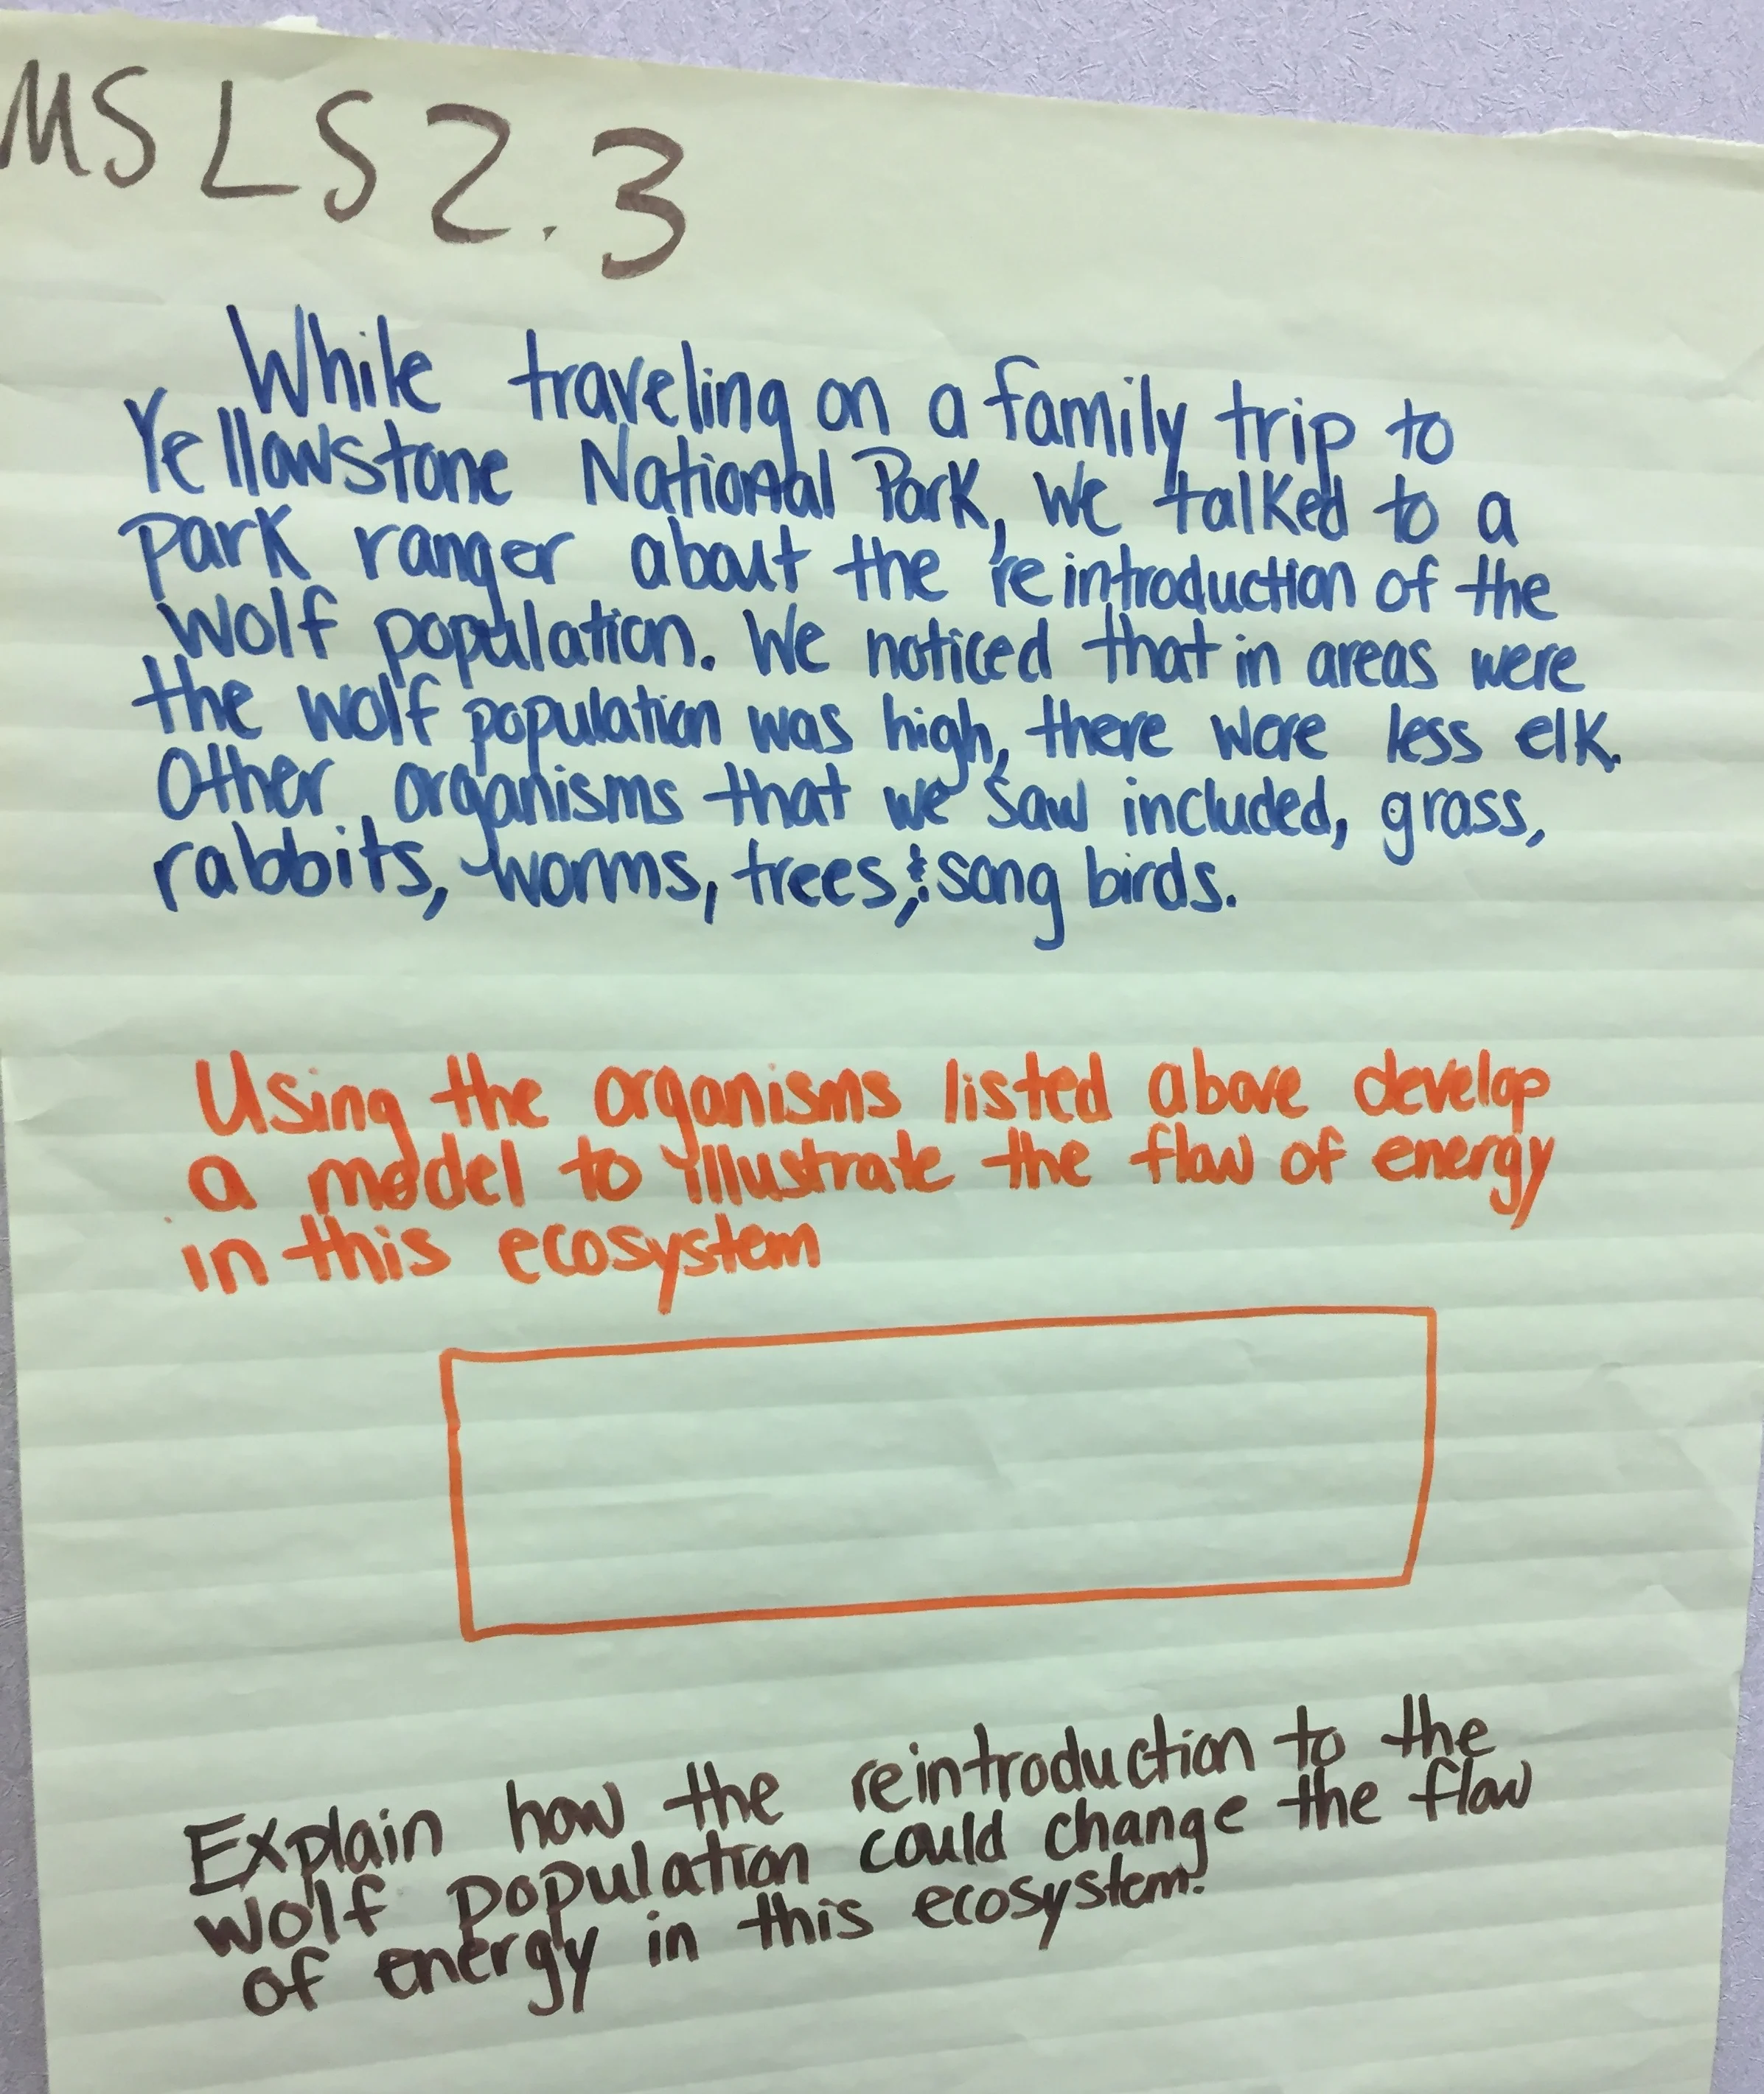 MS LS 2.3
While traveling on a family trip to
Yellowstone National Park, we talked to a
park ranger about the reintroduction of the
wolf population. We noticed that in areas were
the wolf population was high, there were less elk.
Other organisms that we saw included, grass,
rabbits, worms, trees, & song birds.
Using the organisms listed above develop
a model to illustrate the flow of energy
in this ecosystem
Explain how the reintroduction to the
wolf population could change the flow
of energy in this ecosystem.